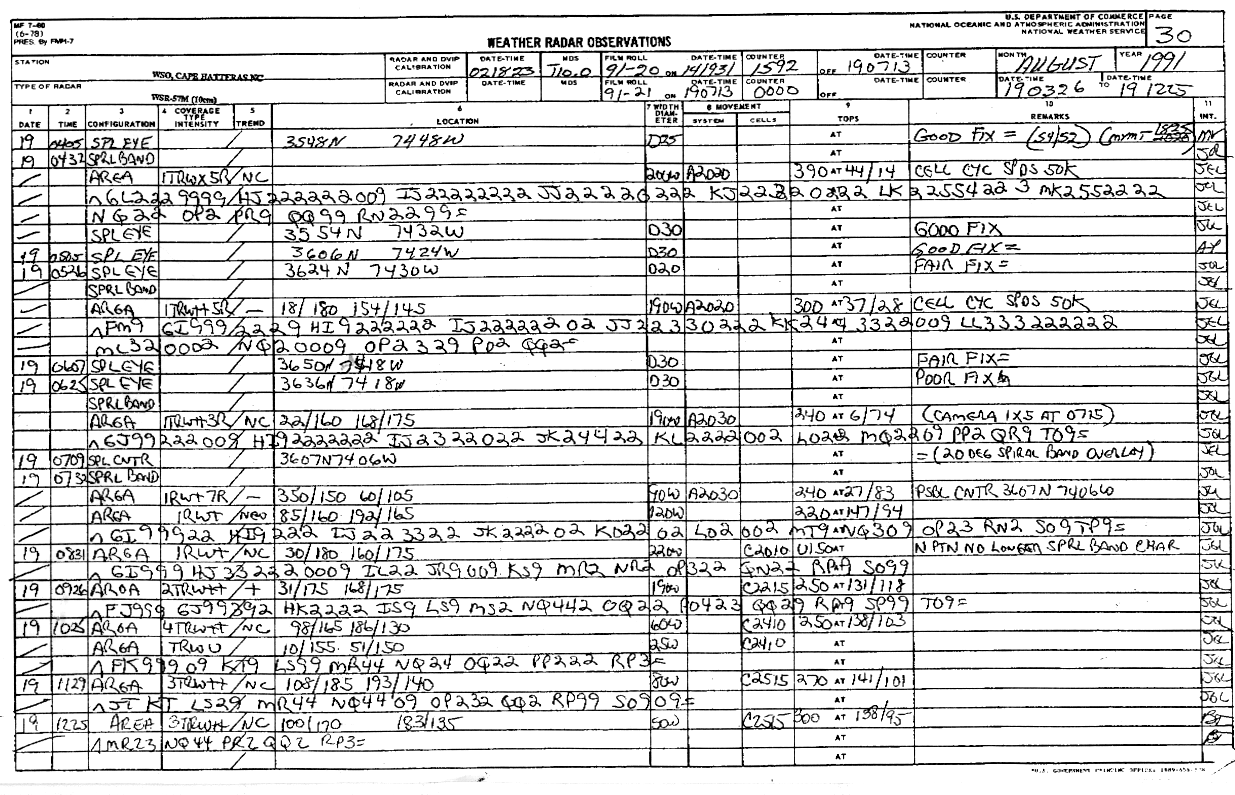 MF 7-60
(6-78)
PRES. By FMH-7
U.S. DEPARTMENT OF COMMERCE
NATIONAL OCEANIC AND ATMOSPHERIC ADMINISTRATION
NATIONAL WEATHER SERVICE
PAGE
30
WEATHER RADAR OBSERVATIONS
STATION WSO, CAPE HATTERAS, NC RADAR AND DVIP CALIBRATION DATE-TIME 021823 MDS 110.0 FILM ROLL 91-20 ON DATE-TIME 141931 COUNTER 1592 OFF DATE-TIME 190713 COUNTER MONTH AUGUST YEAR 1991
TYPE OF RADAR WSR-57M (10cm) RADAR AND DVIP CALIBRATION DATE-TIME MDS FILM ROLL 91-21 ON DATE-TIME 190713 COUNTER 0000 OFF DATE-TIME COUNTER DATE-TIME 190326 TO DATE-TIME 191225
1 DATE 2 TIME 3 CONFIGURATION 4 COVERAGE TYPE INTENSITY 5 TREND 6 LOCATION 7 WIDTH DIAMETER 8 MOVEMENT SYSTEM CELLS 9 TOPS 10 REMARKS 11 INT.
19 0405 SPL EYE 3548N 7448W D25 AT GOOD FIX = (54/52)
19 0432 SPRL BAND AT JGL
AREA 1TRWX5R/NC 200W A2020 390 AT 44/14 CELL CYC SPDS 50K JGL
NQ22 OP2 PR9 QQ99 RN2299= AT JGL
SPL EYE 3554N 7432W D30 AT GOOD FIX JGL
19 0505 SPL EYE 3606N 7424W D30 AT GOOD FIX=
19 0526 SPL EYE 3624N 7430W D20 AT FAIR FIX= JGL
SPRL BAND AT JGL
AREA 1TRW++5R/- 18/180 154/145 190W A2020 300 AT 37/28 CELL CYC SPDS 50K JGL
ML320002/NQ20009 OP2329 PO2 QQ2= AT JGL
19 0607 SPL EYE 3650N 7418W D30 AT FAIR FIX= JGL
19 0625 SPL EYE 3636N 7418W D30 AT POOR FIX JGL
SPRL BAND AT JGL
AREA 1TRW+3R/NC 22/160 168/175 190W A2030 240 AT 6/74 (CAMERA 1X5 AT 0715) JGL
^GJ99222009/HI9222222 IJ2322022 JK24422 KL2222002 LO222 MQ2209 PP2 QR9 TO9= JGL
19 0709 SPL CNTR 3607N7406W AT =(20 DEG SPIRAL BAND OVERLAY) JGL
19 0732 SPRL BAND AT JGL
AREA 1RW+7R/- 350/150 60/105 90W A2030 240 AT 27/83 PSBL CNTR 3607N 7406W JGL
AREA 1RW+/NEW 85/160 192/165 120W 220 AT 147/94 JGL
^GI99922 HI9222 IJ223322 JK222202 KO2202 LO2002 MT9 NQ309 OP23 RN2 SO9TP9= JGL
19 0831 AREA 1RW+/NC 30/180 160/175 220W C2010 U150 AT N PTN NO LONGER SPRL BAND CHAR JGL
^GI999 HJ332220009 IL22 JR9009 KS9 MR2 NR2 OP322 QN22 RP49 SO99 JGL
19 0926 AREA 2TRW++/+ 31/175 168/175 190W C2215 250 AT 131/118 JGL
^FJ999 GJ99892 HK2222 IS9 LS9 MS2 NQ442 OQ22 PO423 QQ29 RP49 SP99 TO9= JGL
19 1025 AREA 4TRW++/NC 98/165 186/130 60W C2410 250 AT 138/103 JGL
AREA TRWU/ 10/155 51/150 25W C2410 AT JGL
^FK99909 KT9 LS99 MR44 NQ24 OQ22 PP222 RP3= AT JGL
19 1129 AREA 3TRW++/NC 108/185 193/140 80W C2515 270 AT 141/101 JGL
^JT KT LS29 MR44 NQ4409 OP232 QQ2 RP99 SO909= AT JGL
19 1225 AREA 3TRW++/NC 100/170 183/135 50W C2515 300 AT 138/95
^MR23 NQ44 PR2 QQ2 RP3= AT
AT